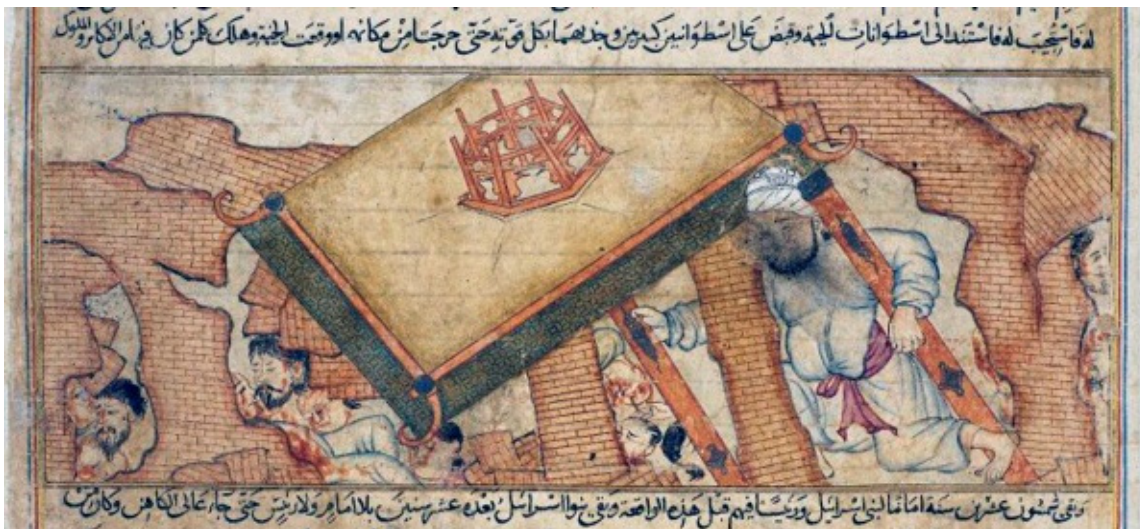 له فاستجيب له فاستند الى اسطوانات الجنة وقبض على اسطوانتين كبيرتين وجذبهما بكل قوته حتى خرجتا من مكانهما ووقعت الجنة وهلك كل من كان فيه من الاكابر والملوك
وبقى شمشون عشرين سنة اماما لبنى اسرائيل ورئيسا فيهم قبل هذه الواقعة وبقى بنوا اسرائيل بعده عشر سنين بلا امام ولا رئيس حتى جاء عالى الكاهن وكان من